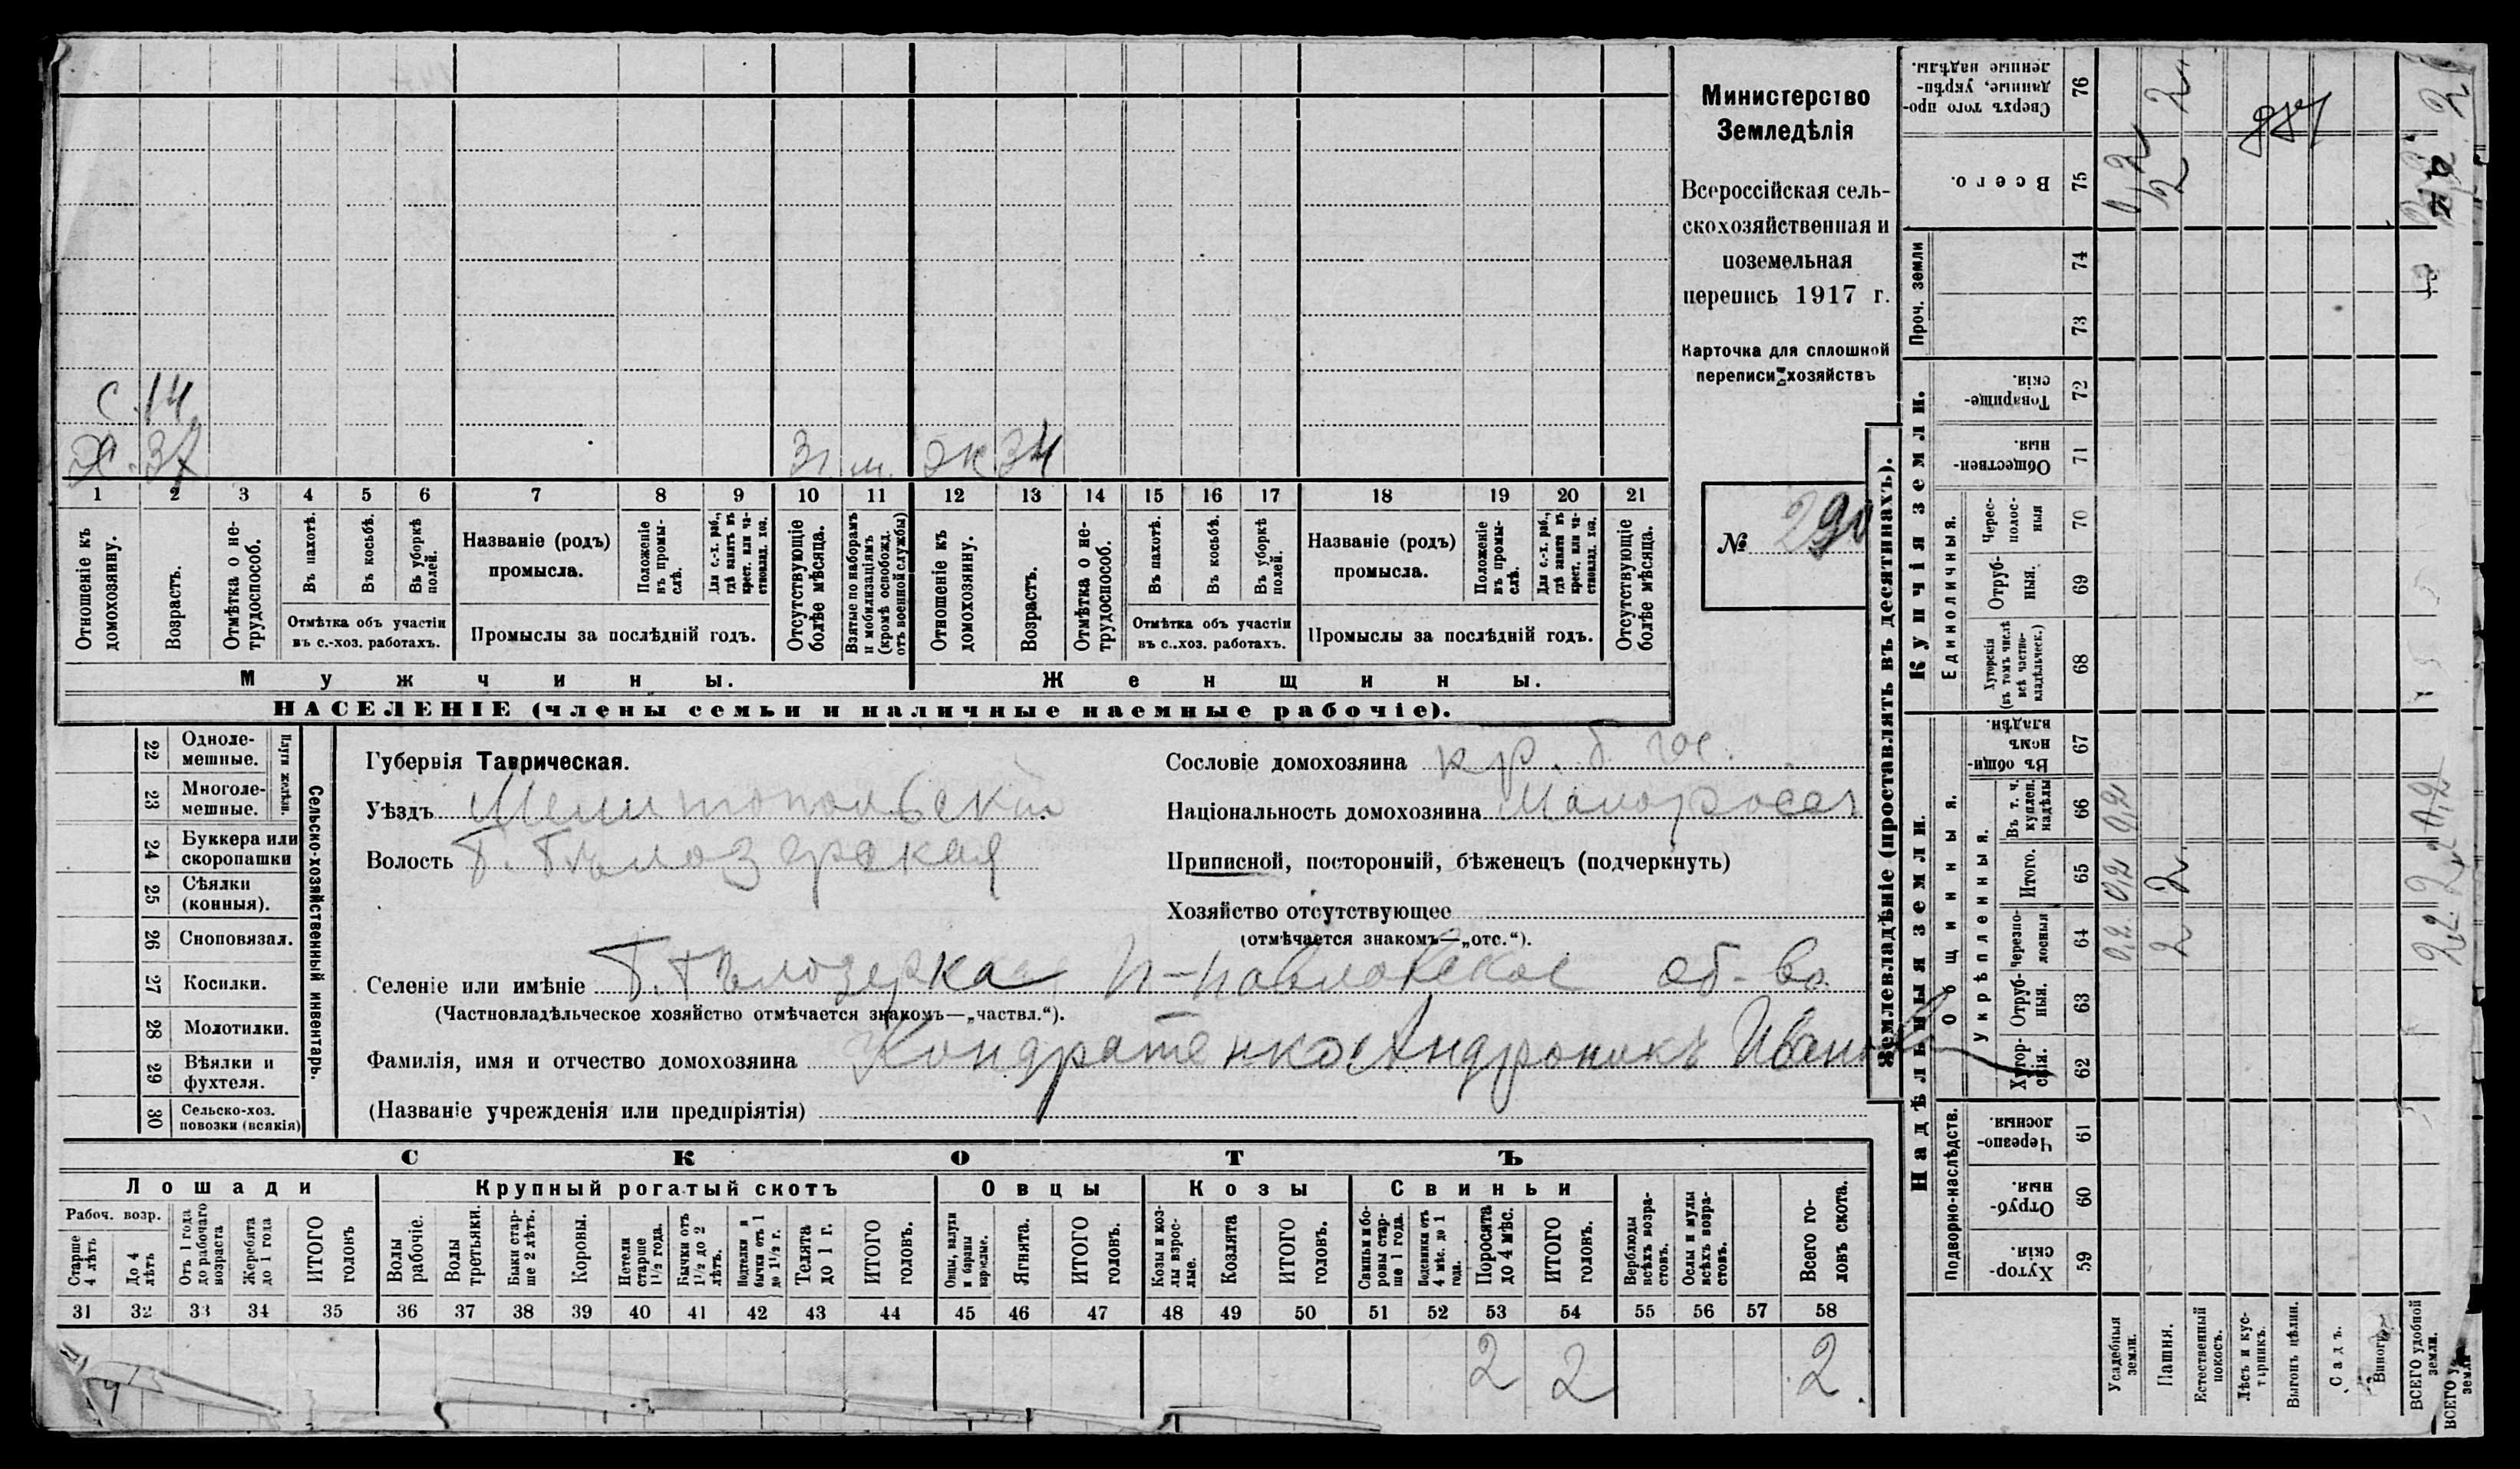 Министерство
Земледѣлія
Всероссійская сель-
скохозяйственная и
поземельная
перепись 1917 г.
Карточка для сплошной
переписи хозяйствъ
№ 290
С. 14
Х. 37 З1 м. Ж 34
1 2 3 4 5 6 7 8 9 10 11 12 13 14 15 16 17 18 19 20 21
Отношеніе къ домохозяину.
Возрастъ.
Отмѣтка о не-трудоспособ.
Въ пахотѣ.
Въ косьбѣ.
Въ уборкѣ полей.
Отмѣтка объ участіи въ с.-хоз. работахъ.
Названіе (родъ) промысла.
Положеніе въ промы-слѣ.
Для с.-х. раб., гдѣ занятъ въ крест. или ча-стновлад. хоз.
Промыслы за послѣдній годъ.
Отсутствующіе болѣе мѣсяца.
Взятые по наборамъ и мобилизаціямъ (кромѣ освобожд. отъ военной службы)
Отношеніе къ домохозяину.
Возрастъ.
Отмѣтка о не-трудоспособ.
Въ пахотѣ.
Въ косьбѣ.
Въ уборкѣ полей.
Отмѣтка объ участіи въ с..хоз. работахъ.
Названіе (родъ) промысла.
Положеніе въ промы-слѣ.
Для с.-х. раб., гдѣ занята въ крест. или ча-стновлад. хоз.
Промыслы за послѣдній годъ.
Отсутствующіе болѣе мѣсяца.
Мужчины. Женщины.
НАСЕЛЕНІЕ (члены семьи и наличные наемные рабочіе).
Сельско-хозяйственный инвентарь.
Плуги желѣзн.
22 Одноле-мешные.
23 Многоле-мешные.
24 Буккера или скоропашки
25 Сѣялки (конныя).
26 Сноповязал.
27 Косилки.
28 Молотилки.
29 Вѣялки и фухтеля.
30 Сельско-хоз. повозки (всякія)
Губернія Таврическая.
Уѣздъ Мелитопольскій
Волость Б. Бѣлозерская
Сословіе домохозяина кр. б. гос.
Національность домохозяина Малоросс
Приписной, посторонній, бѣженецъ (подчеркнуть)
Хозяйство отсутствующее
(отмѣчается знакомъ—„отс.“).
Селеніе или имѣніе Б. Бѣлозерка П-павловское об-во
(Частновладѣльческое хозяйство отмѣчается знакомъ—„частвл.“).
Фамилія, имя и отчество домохозяина Кондратенко Андроникъ Иван
(Названіе учрежденія или предпріятія)
СКОТЪ
Лошади Крупный рогатый скотъ Овцы Козы Свиньи
Рабоч. возр.
Старше 4 лѣтъ
До 4 лѣтъ
Отъ 1 года до рабочаго возраста
Жеребята до 1 года
ИТОГО головъ
Волы рабочіе.
Волы третьяки.
Быки стар-ше 2 лѣтъ.
Коровы.
Нетели старше 1½ года.
Бычки отъ 1½ до 2 лѣтъ.
Подтелки и бычки отъ 1 до 1½ г.
Телята до 1 г.
ИТОГО головъ.
Овцы, валухи и бараны взрослые.
Ягнята.
ИТОГО головъ.
Козы и коз-лы взрос-лые.
Козлята
ИТОГО головъ.
Свиньи бо-ровы стар-ше 1 года.
Подсвинки отъ 4 мѣс. до 1 года.
Поросята до 4 мѣс.
ИТОГО головъ.
Верблюды всѣхъ возра-стовъ.
Ослы и мулы всѣхъ возра-стовъ.
Всего го-ловъ скота.
31 32 33 34 35 36 37 38 39 40 41 42 43 44 45 46 47 48 49 50 51 52 53 54 55 56 57 58
2 2 2
Землевладѣніе (проставлять въ десятинахъ).
Надѣльныя земли.
Купчія земли.
Проч. земли
Подворно-наслѣдств.
Общинныя.
Укрѣпленныя.
Единоличныя.
59 Хутор-скія.
60 Отруб-ныя.
61 Черезпо-лосныя
62 Хутор-скія.
63 Отруб-ныя.
64 Черезпо-лосныя
65 Итого.
66 Въ т. ч. куплен. надѣлы
67 Въ общи-номъ владѣн.
68 Хуторскія (въ томъ числѣ всѣ частно-владѣльческ.)
69 Отруб-ныя.
70 Черес-полос-ныя
71 Обществен-ныя.
72 Товарище-скія.
73
74
75 Всего.
76 Сверхъ того про-данные, укрѣп-ленные надѣлы.
Усадебныя земли. 0,2 0,2 0,2 0,2
Пашня. 2 2 2 2
Естественный покосъ.
Лѣсъ и кус-тарникъ.
Выгонъ цѣлин.
Садъ.
Виногр.
ВСЕГО удобной земли. 2,2 2,2 0,2